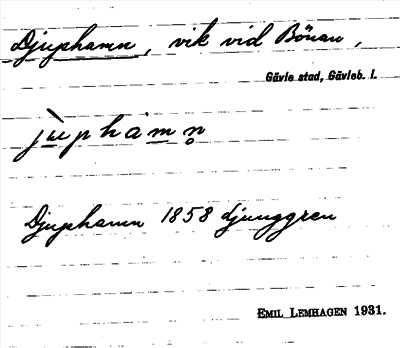 Djuphamn, vik vid Bönan,
Gävle stad, Gävleb. l.
jùphámn̥
Djuphamn 1858 Ljunggren
EMIL LEMHAGEN 1931.